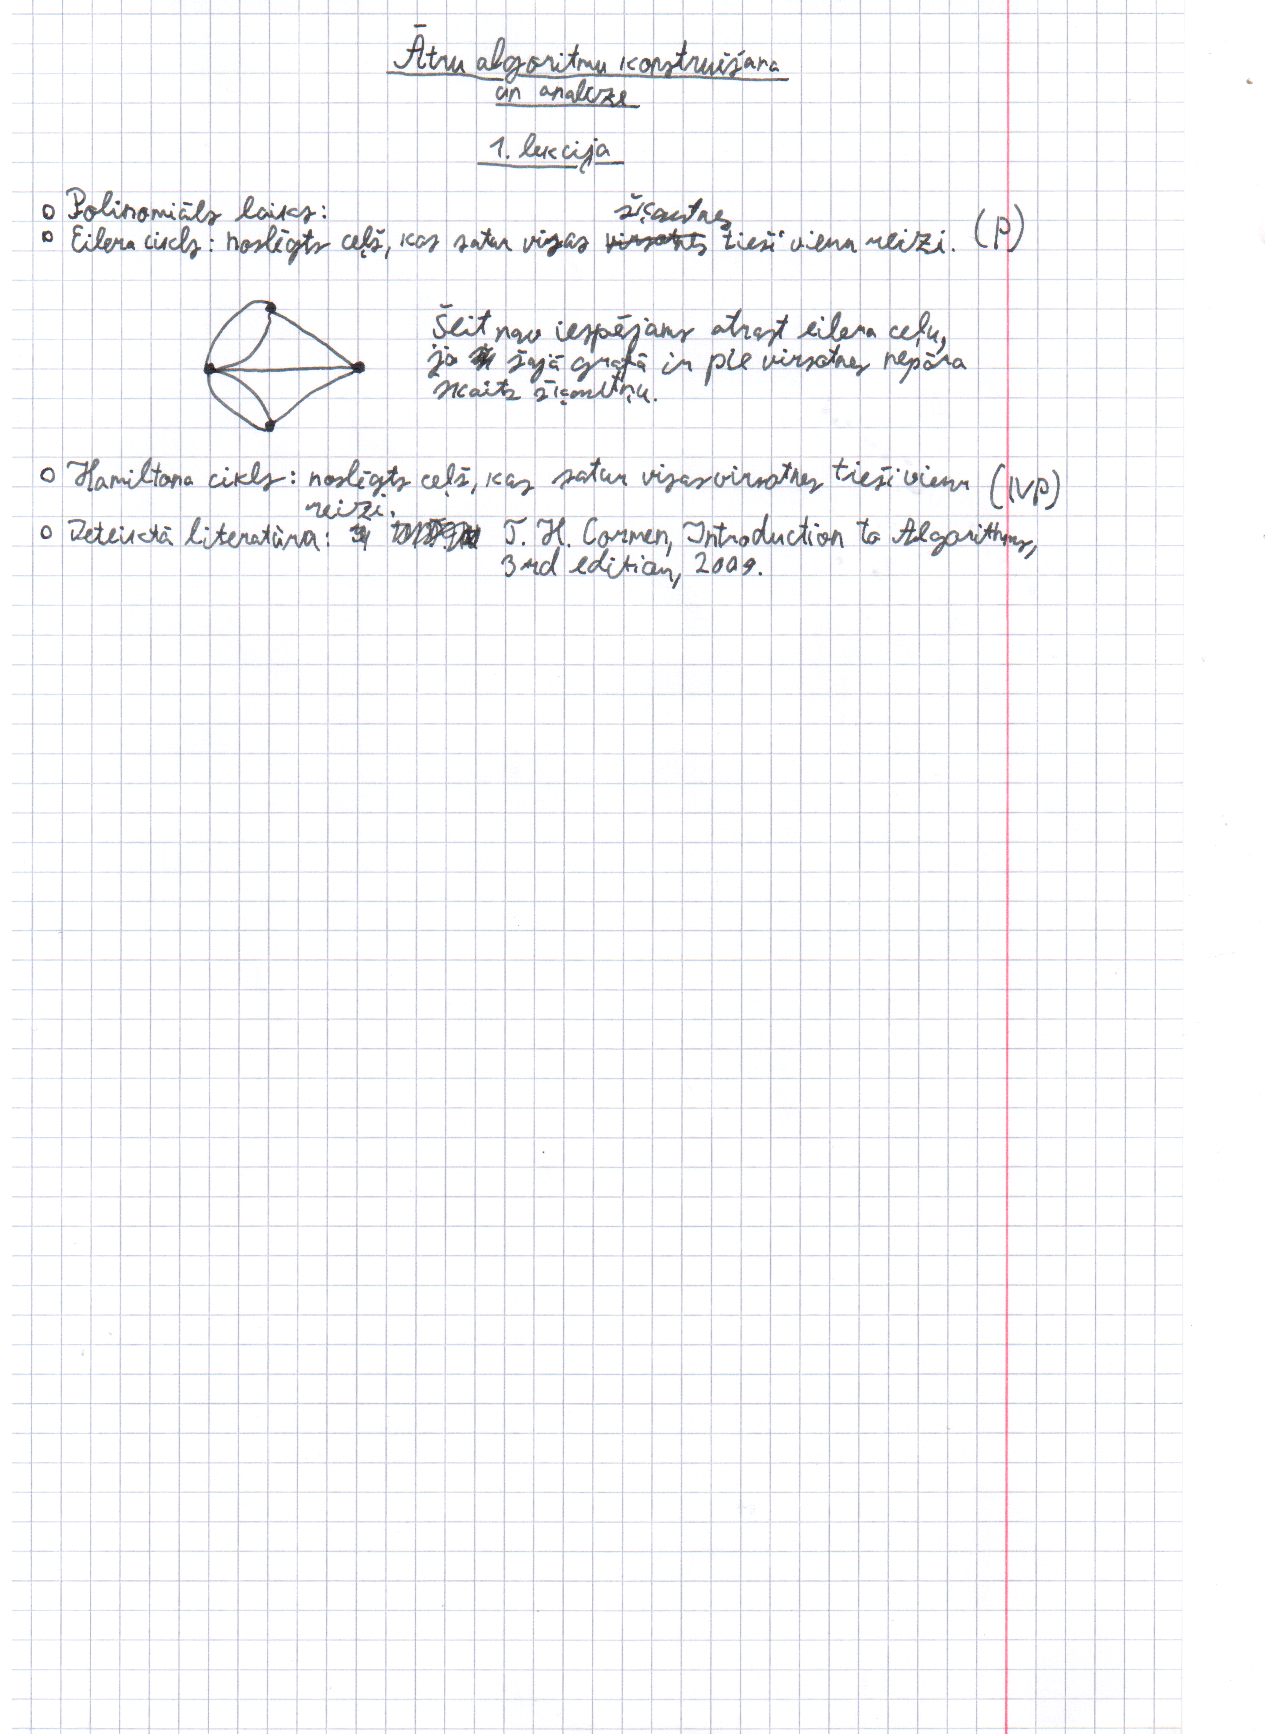 Ātru algoritmu konstruēšana
un analīze
1. lekcija
Polinomiāls laiks:
šķautnes
Eilera cikls: noslēgts ceļš, kas satur visas virsotnes tieši vienu reizi. (P)
Šeit nav iespējams atrast eilera ceļu,
jo šajā grafā ir pie virsotnes nepāra
skaits šķautņu.
Hamiltona cikls: noslēgts ceļš, kas satur visas virsotnes tieši vienu (NP)
reizi.
Ieteiktā literatūra: T. H. Cormen, Introduction to Algorithms,
3rd edition, 2009.